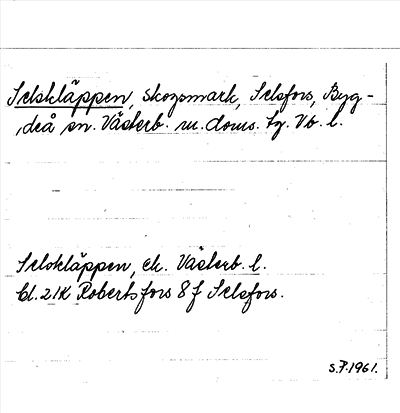 Selskläppen, skogsmark, Selsfors, Byg-
deå sn. Västerb. m. doms. tg. Vb. l.
Selskläppen, ek. Västerb. l.
Bl. 21K Robertsfors 8 f Selsfors.
S.P. 1961.